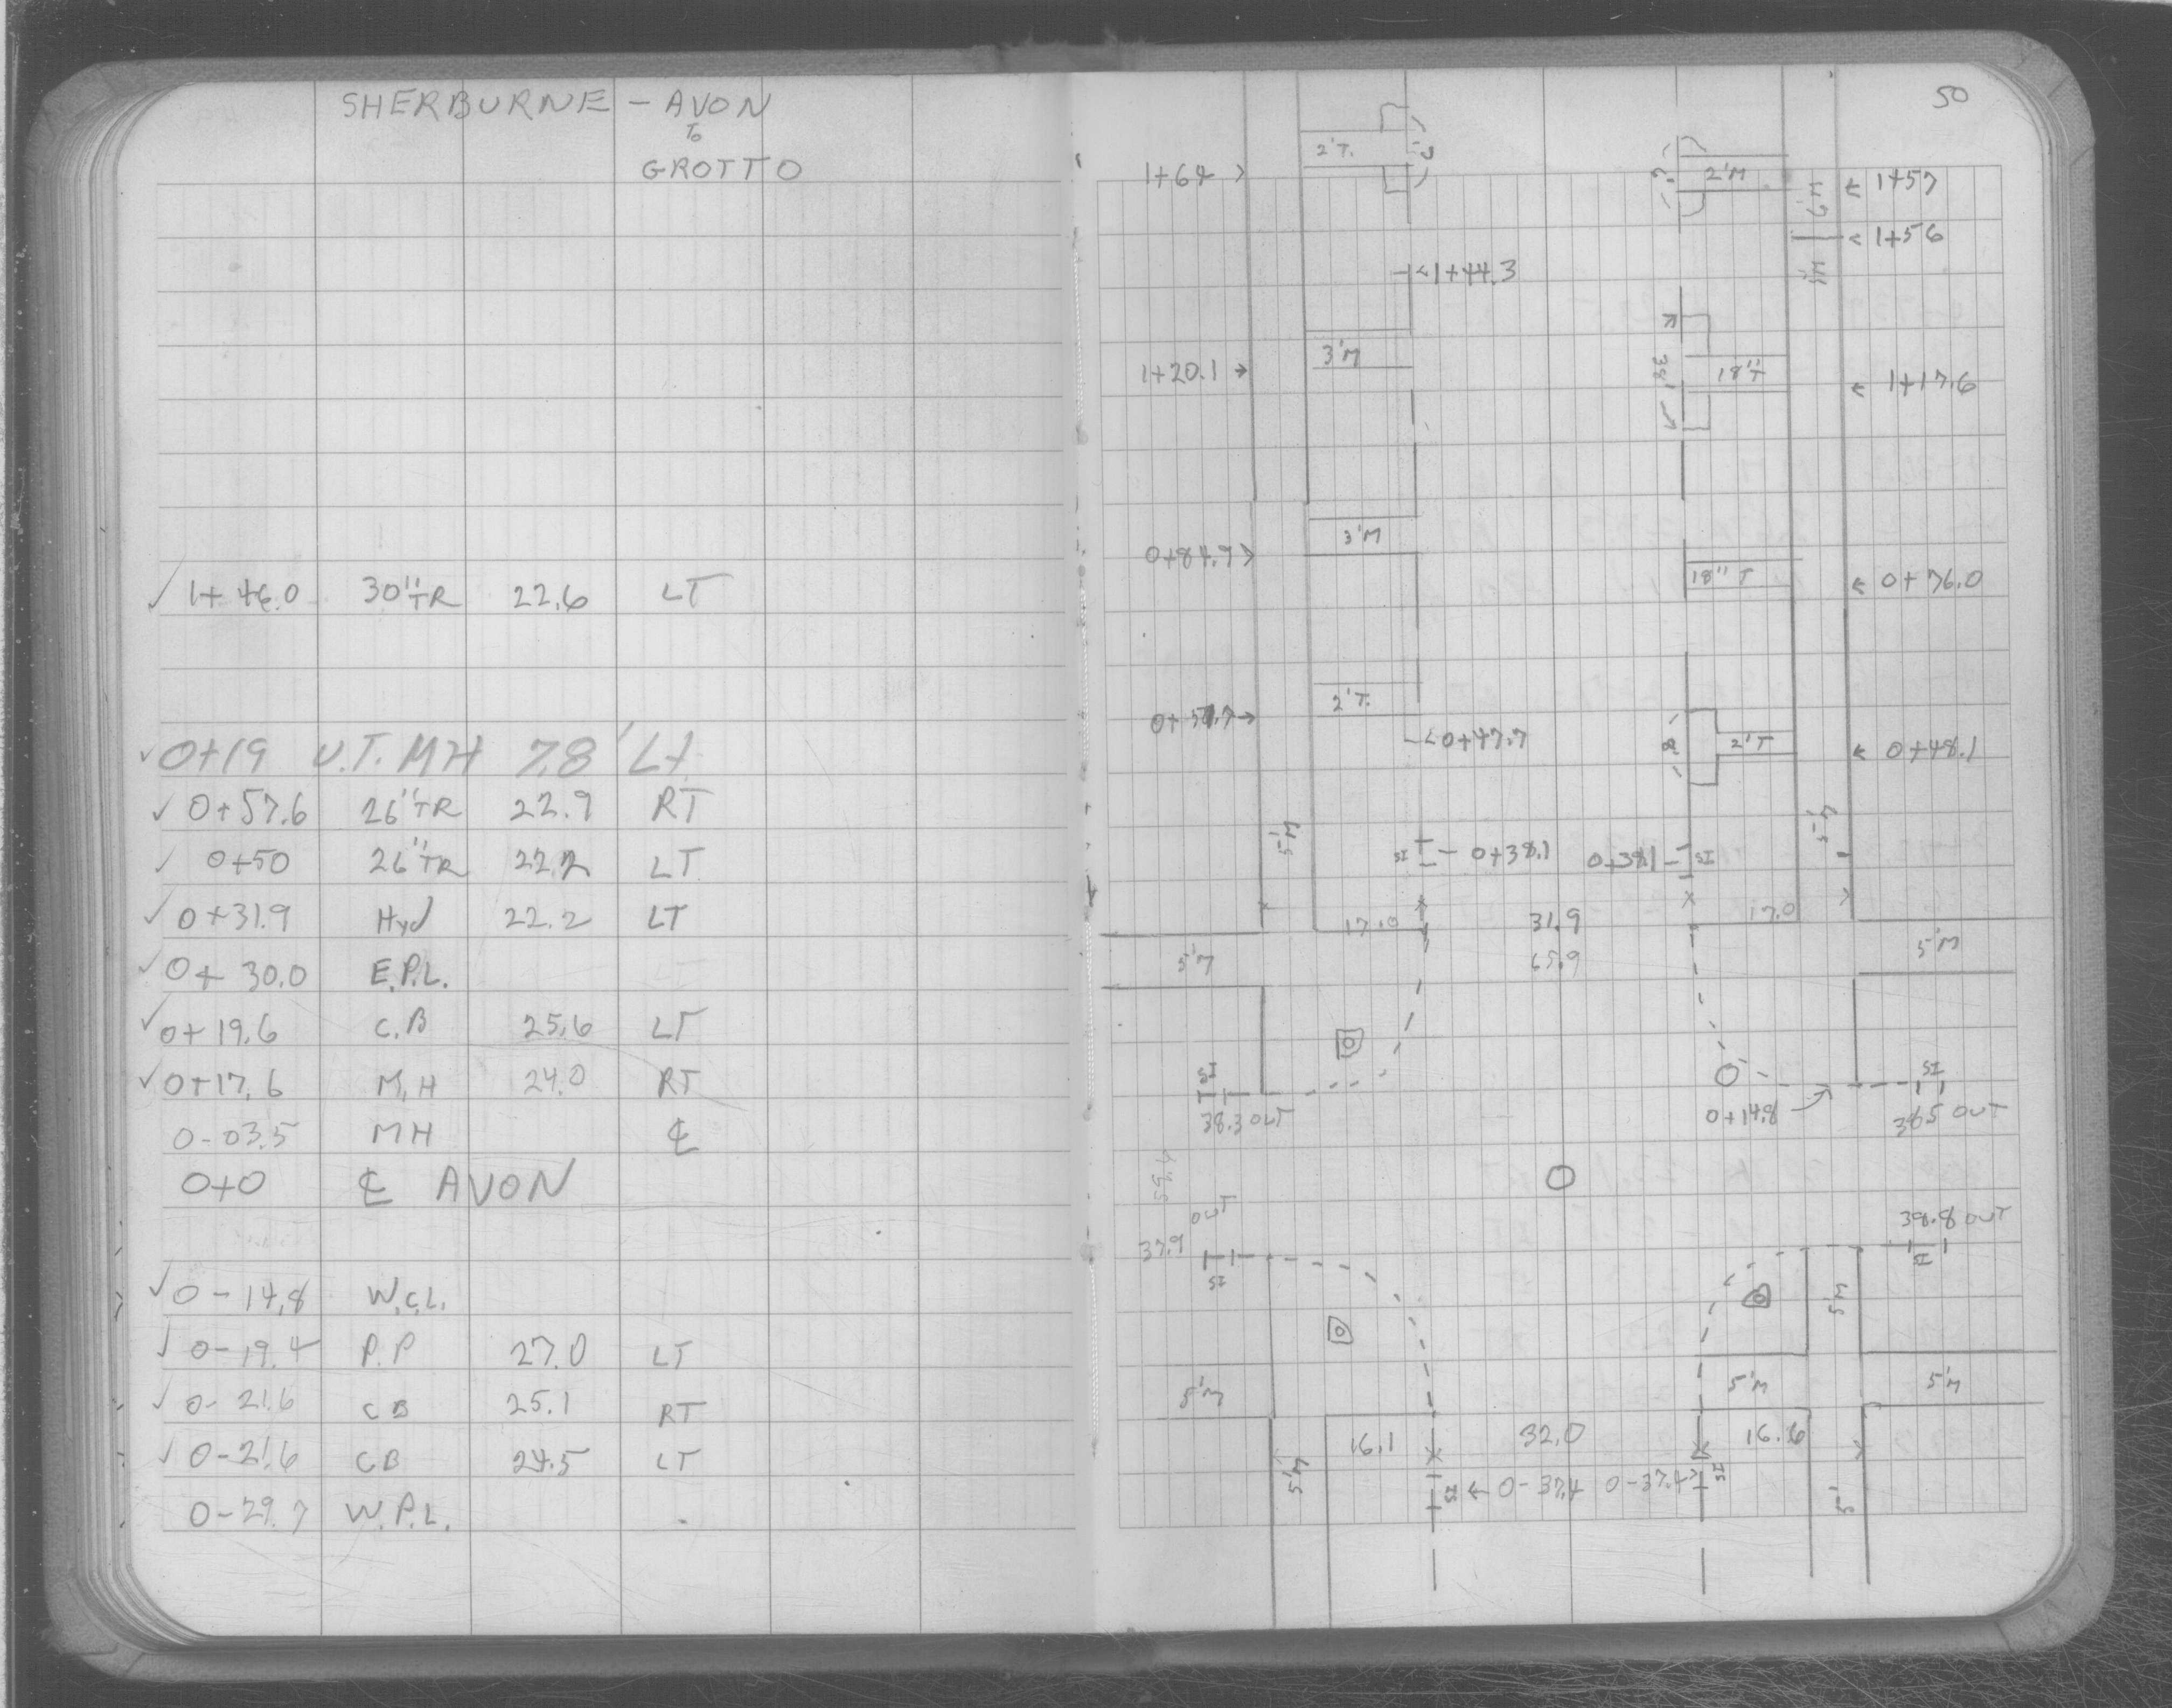 SHERBURNE - AVON
TO
GROTTO
✓ 1+46.0 30"TR 22.6 LT
✓ 0+19 U.T. MH 7.8' Lt
✓ 0+57.6 26"TR 22.9 RT
✓ 0+50 26"TR 22.2 LT
✓ 0+31.9 Hyd 22.2 LT
✓ 0+30.0 E.P.L.
✓ 0+19.6 C.B 25.6 LT
✓ 0+17.6 M.H 24.0 RT
0-03.5 MH ℄
0+0 ℄ AVON
✓ 0-14.8 W.C.L.
✓ 0-19.4 P.P 27.0 LT
✓ 0-21.6 CB 25.1 RT
✓ 0-21.6 CB 24.5 LT
0-29.7 W.P.L.
50
1+64 2'T. 2'M 1+57
1+56
1+44.3
1+20.1 3'M 18"T 1+17.6
0+84.7 3'M
18" T 0+76.0
2'T.
0+47.7 8' 2'T 0+48.1
5'M
SI 0+38.1 0+38.1 SI
17.0 31.9 17.0
5'M 65.9 5'M
SI SI
38.3 OUT 0+14.8 36.5 OUT
OUT 39.8 OUT
37.9
SI SI
5'M
5'M 5'M 5'M
16.1 32.0 16.6
5'M SI ← 0-37.4 0-37.4 SI